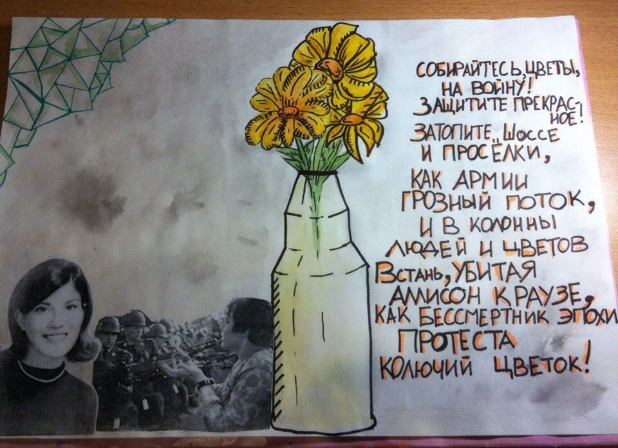 СОБИРАЙТЕСЬ, ЦВЕТЫ,
НА ВОЙНУ!
ЗАЩИТИТЕ ПРЕКРАС-
НОЕ!
ЗАТОПИТЕ ШОССЕ
И ПРОСЁЛКИ,
КАК АРМИИ
ГРОЗНЫЙ ПОТОК,
И В КОЛОННЫ
ЛЮДЕЙ И ЦВЕТОВ
ВСТАНЬ, УБИТАЯ
АЛЛИСОН КРАУЗЕ,
КАК БЕССМЕРТНИК ЭПОХИ
ПРОТЕСТА
КОЛЮЧИЙ ЦВЕТОК!